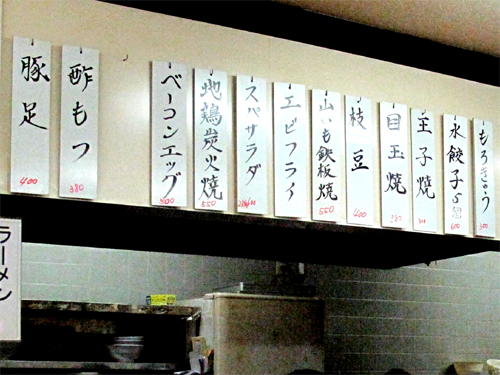 豚足
400
酢もつ
380
ベーコンエッグ
400
地鶏炭火焼
550
スパサラダ
エビフライ
山いも鉄板焼
550
枝豆
400
目玉焼
玉子焼
水餃子5個
600
もろきゅう
300
ラーメン